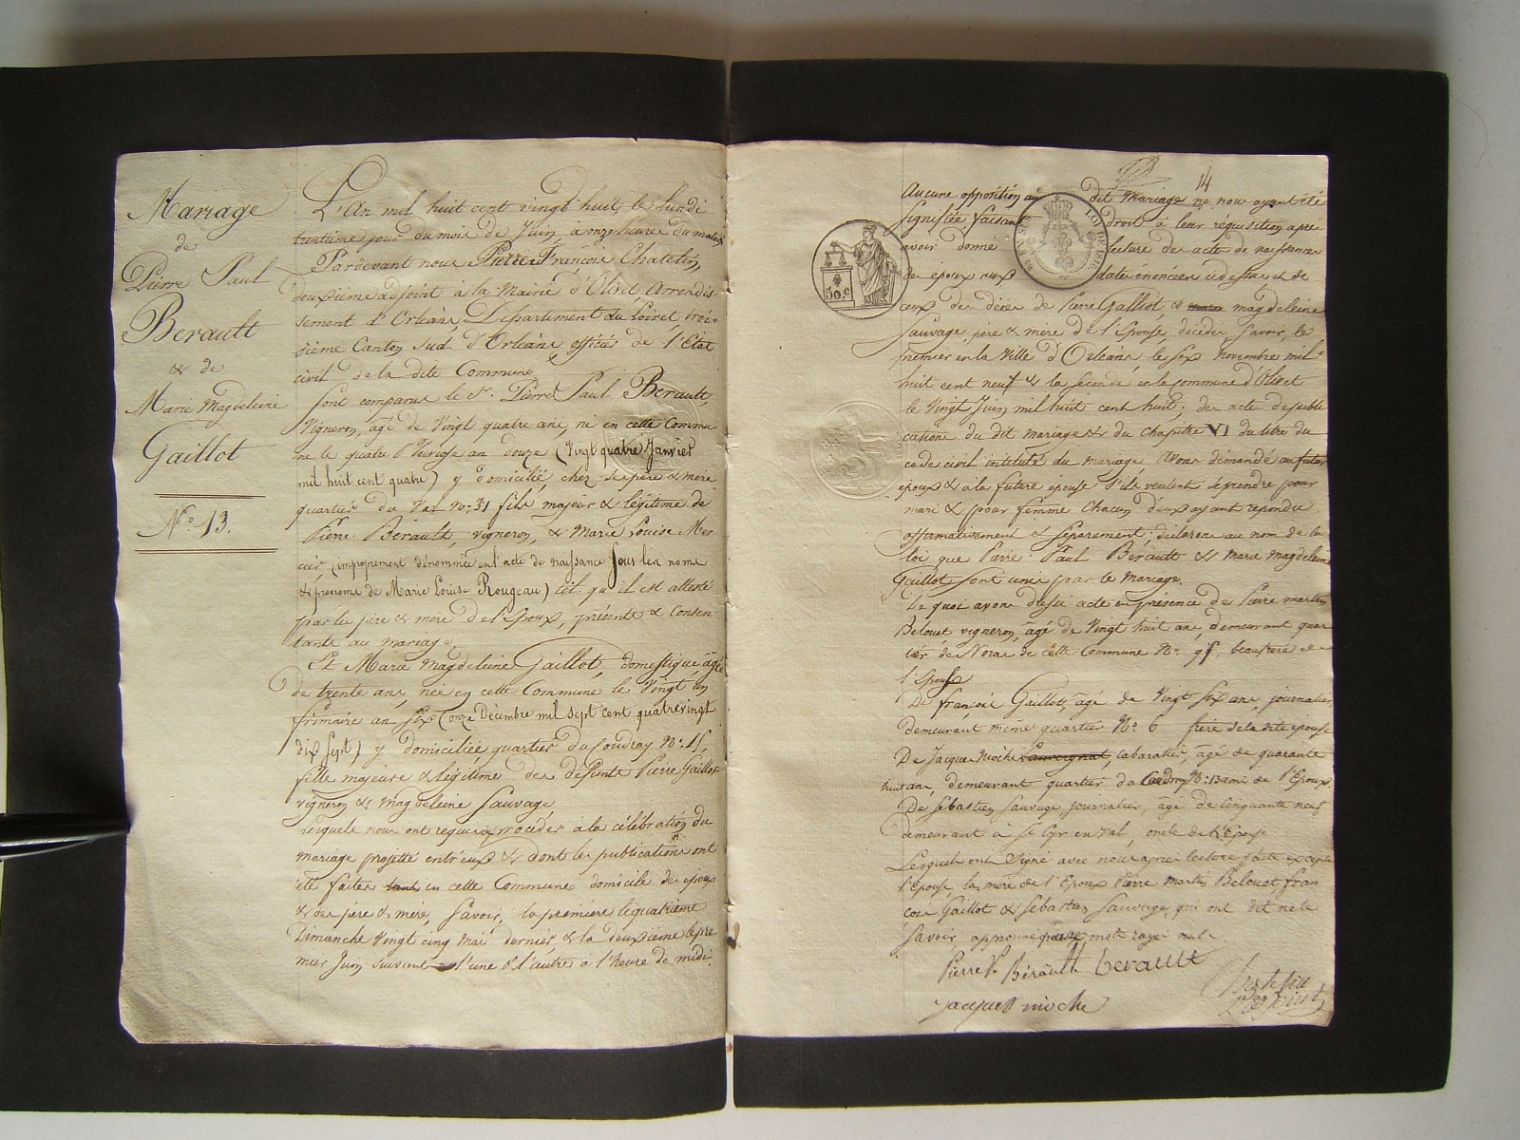 Mariage
de
Pierre Paul
Berault
& de
Marie Magdeleine
Gaillot
N.º 13.
L'An mil huit cent vingt huit le lundi
trentieme jour du mois de Juin a onze heure du matin
Pardevant nous Pierre François Chatelin,
deuxième adjoint à la Mairie d'Olivet, Arrondis-
sement d'Orleans, Département du Loiret, troi-
sième Canton Sud d'Orleans officier de l'Etat
civil de la dite Commune
sont comparus le Sr. Pierre Paul Berault,
Vigneron, agé de Vingt quatre ans, né en cette Commu
ne le quatre an douze (Vingt quatre Janvier
mil huit cent quatre) y domicilié chez se père & mère
quartier du Nº: 31 fils majeur & légitime de
Pierre Berault, vigneron, & Marie Louise Mer-
cier (improprement dénommée en l'acte de naissance sous les noms
& prenoms de Marie Louise Rougeau) tel qu'il est attesté
par les père & mère de l'Epoux, présents & consen-
tants au mariage,
Et Marie Magdeleine Gaillot, domestique, âgée
de trente ans, née en cette Commune le Vingt un
frimaire an six (onze Décembre mil sept cent quatre vingt
dix sept) y domiciliée quartier du Coudray Nº: 15,
fille majeure & légitime des défunts Pierre Gaillot
vigneron & Magdeleine Sauvage,
lesquels nous ont requis procéder à la célébration du
mariage projetté entr'eux & dont les publications ont
été faites tant en cette Commune domicile des epoux
& des père & mère, Savoir, la première le quatrième
Dimanche Vingt cinq Mai dernier, & la deuxième le pre
mier Juin suivant l'une & l'autre à l'heure de midi.
14
Aucune opposition au dit Mariage ne nous ayant été
signifiée faisant droit à leur réquisition après
avoir donné lecture des actes de naissance
des epoux aux dates énoncées ci dessus et de
ceux des décès de Pierre Gaillot & Magdeleine
Sauvage, père & mère de l'Epouse décédés Savoir, le
premier en la Ville d'Orleans, le six Novembre mil
huit cent neuf & la seconde en le commune d'Olivet
le Vingt Juin mil huit cent huit; des actes de publi
cations du dit mariage & du chapitre VI du titre du
code civil intitulé du mariage Avons démandé au futur
epoux & à la future epouse s'ils veulent se prendre pour
mari & pour femme chacun d'eux ayant repondu
affirmativement & separement; declarons au nom de la
loi que Pierre Paul Berault & Marie Magdeleine
Gaillot sont unis par le mariage.
De quoi avons dressé acte en présence de Pierre Martin
Belouet vigneron, âgé de Vingt huit ans, demeurant quar
tier de de cette Commune Nº. beaufrère de
l'Epouse
De François Gaillot, agé de Vingt six ans, journalier,
demeurant même quartier Nº. 6 frère de la dite epouse
De Jacques Moche cabaratier, âgé de quarante
huit ans, demeurant quartier du Coudray Nº: 13 ami de l'Epoux
De Sébastien Sauvage, journalier, âgé de cinquante neuf
demeurant à St Cyr en Val, oncle de l'Epouse
Lesquels ont Signé avec nous après lecture faite excepté
l'Epouse, la mère de l'Epoux Pierre Martin Belouet fran
çois Gaillot & Sébastien Sauvage, qui ont dit ne le
Savoir, approuvé mots rayés nuls
Pierre P. Bérault berault
jacques moche
50 c